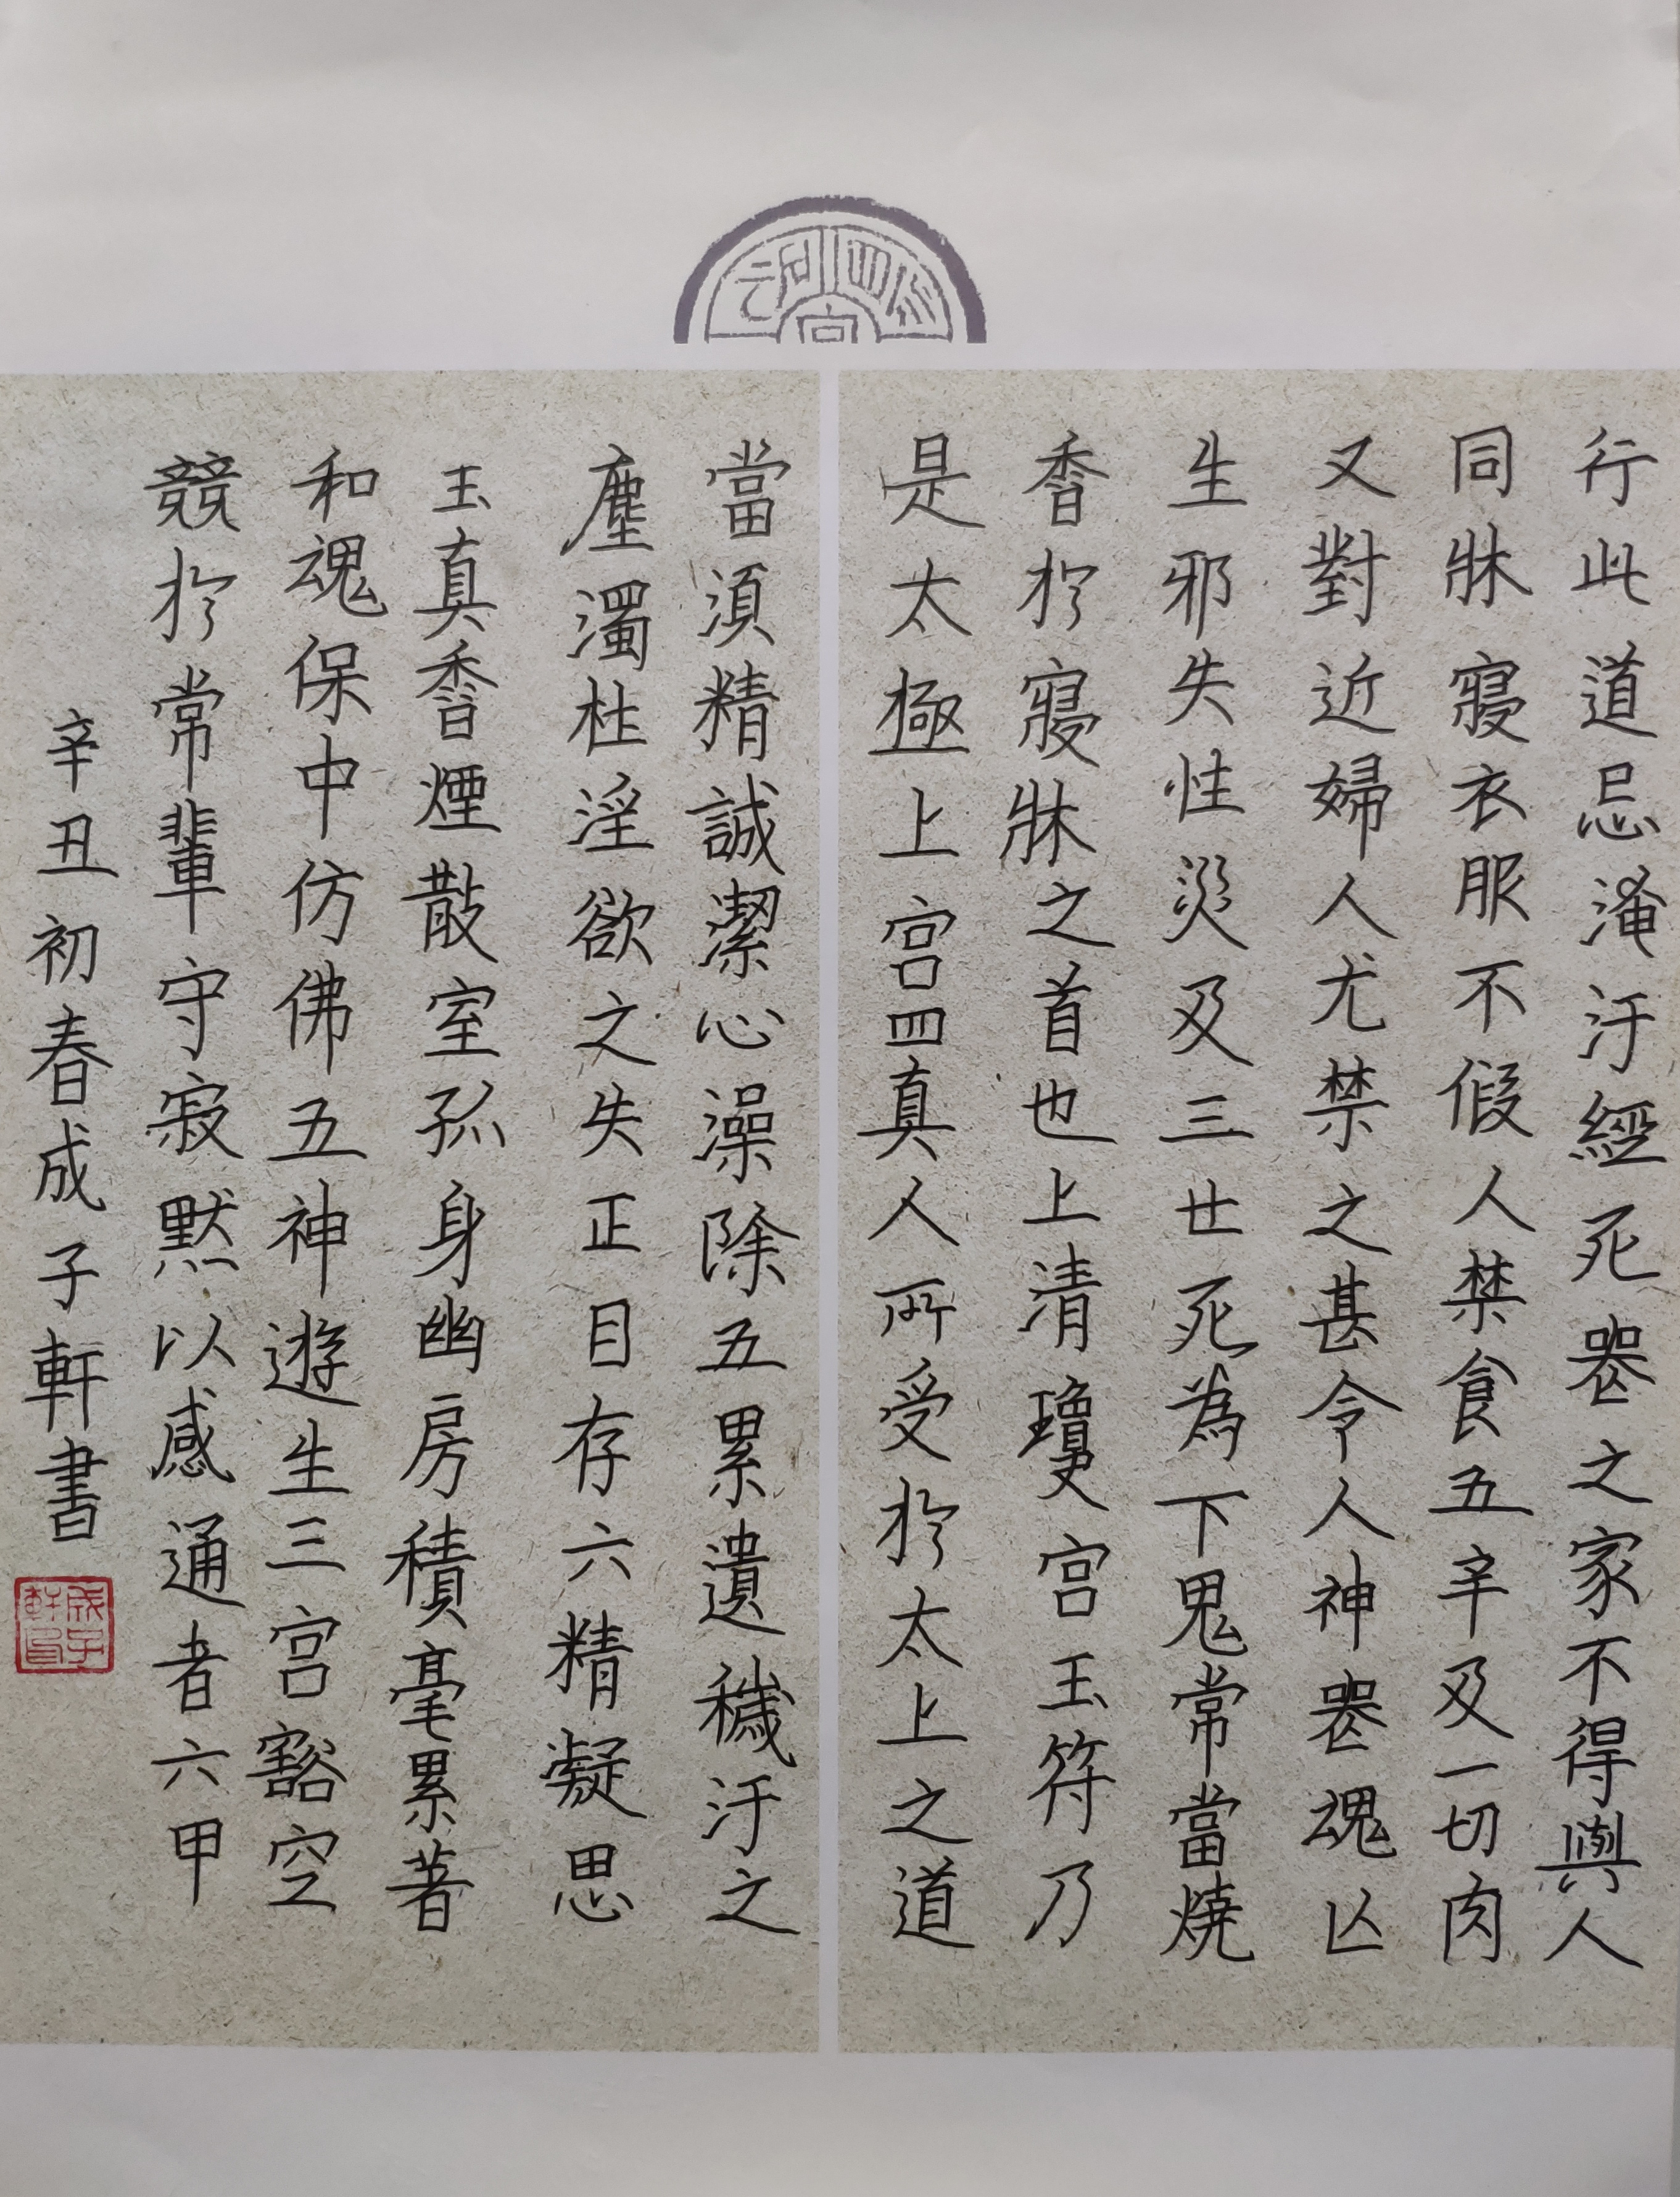 行此道忌淹汙經死喪之家不得與人
同牀寢衣服不假人禁食五辛及一切肉
又對近婦人尤禁之甚令人神喪魂亡
生邪失性災及三世死為下鬼常當燒
香於寢牀之首也上清瓊宮玉符乃
是太極上宮四真人所受於太上之道
當須精誠潔心澡除五累遺穢汙之
塵濁杜淫欲之失正目存六精凝思
玉真香煙散室孤身幽房積毫累著
和魂保中仿佛五神遊生三宮豁空
競於常輩守寂默以感通者六甲
辛丑初春成子軒書
成子軒印